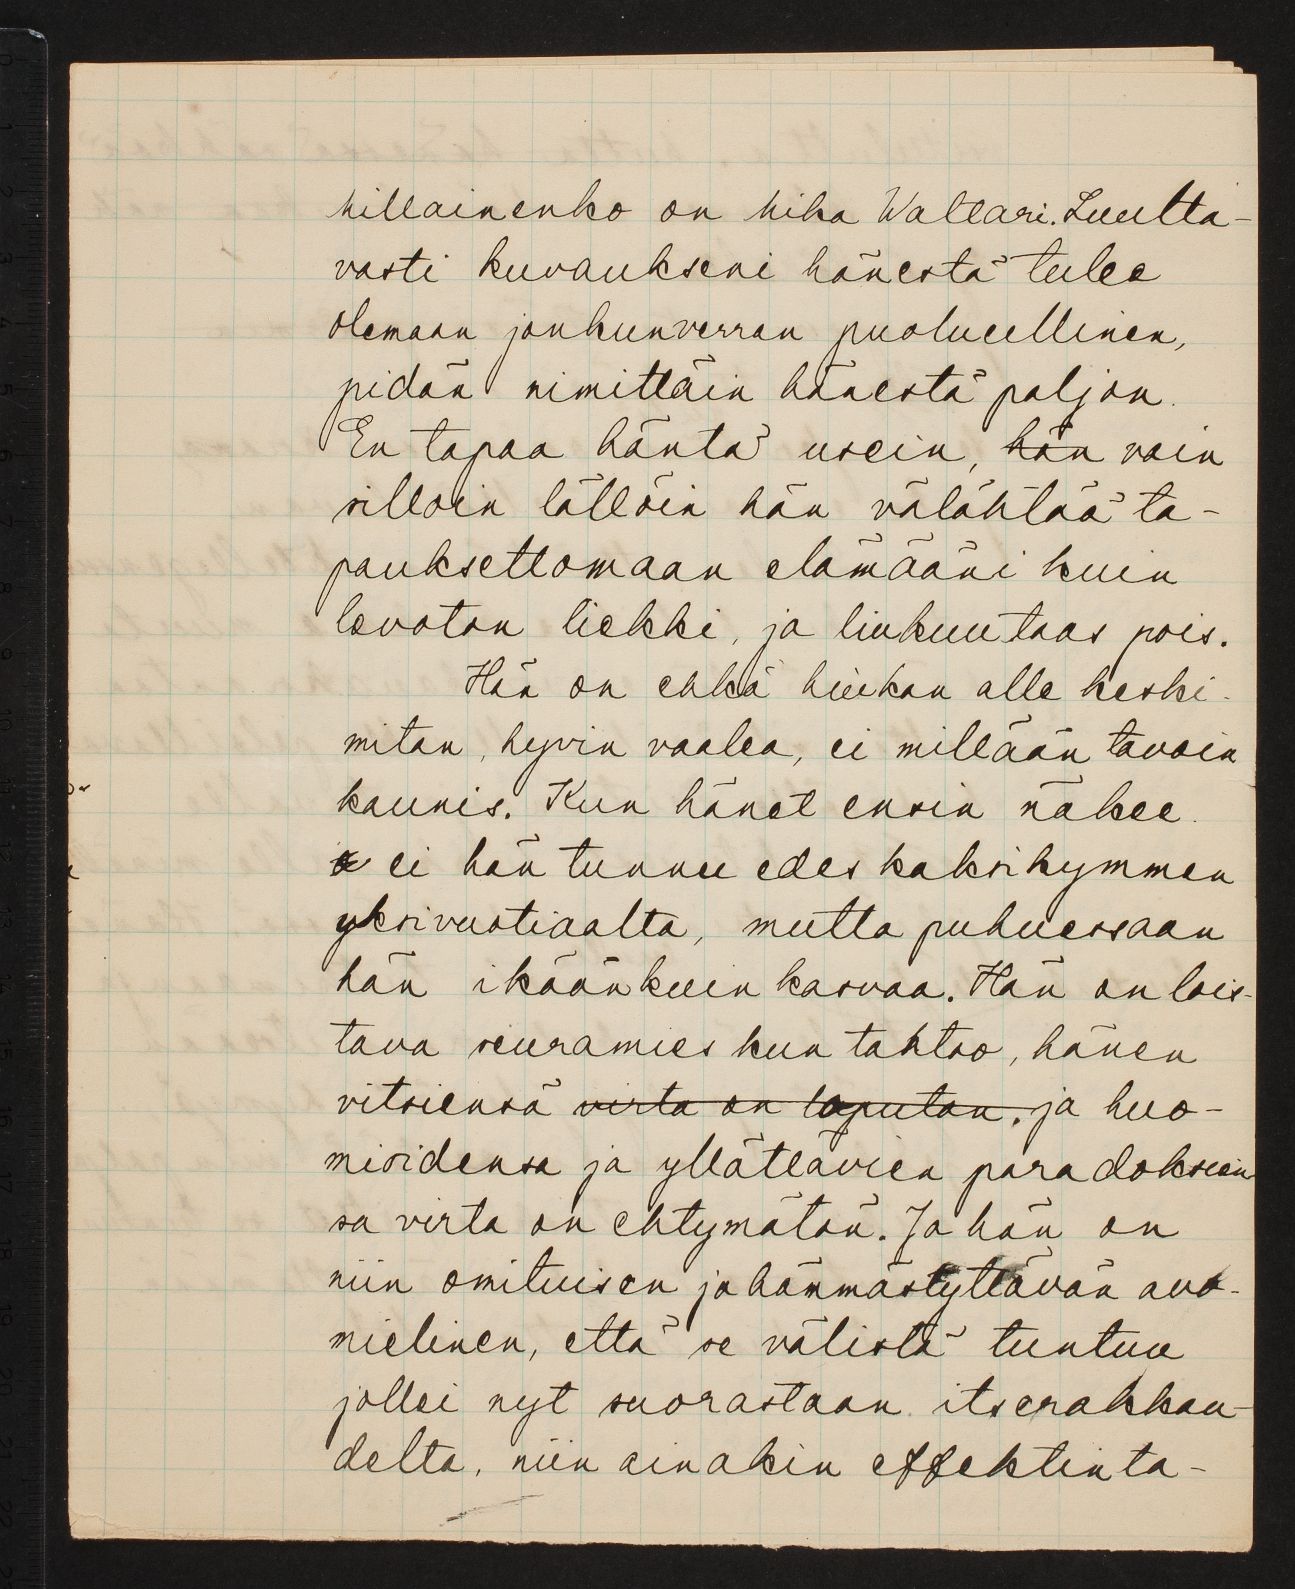 hillainenko on Mika Waltari. Luulta-
vasti kuvaukseni hänestä tulee
olemaan jonkunverran puolueellinen,
pidän nimittäin hänestä paljon.
En tapaa häntä usein, hän vain
silloin tällöin hän välähtää ta-
pauksettomaan elämääni kuin
levoton liekki, ja liukuu taas pois.
Hän on ehkä hiukan alle keski-
mitan, hyvin vaalea, ei millään tavoin
kaunis. Kun hänet ensin näkee
ei hän tunnu edes kaksikymmen
yksivuotiaalta, mutta puhuessaan
hän ikäänkuin kasvaa. Hän on lois-
tava seuramies kun tahtoo, hänen
vitsiensä virta on loputon. ja huo-
mioidensa ja yllättävien paradoksien-
sa virta on ehtymätön. Ja hän on
niin omituisen ja hämmästyttävän avo-
mielinen, että se välistä tuntuu
jollei nyt suorastaan itserakkau-
delta, niin ainakin effektinta-